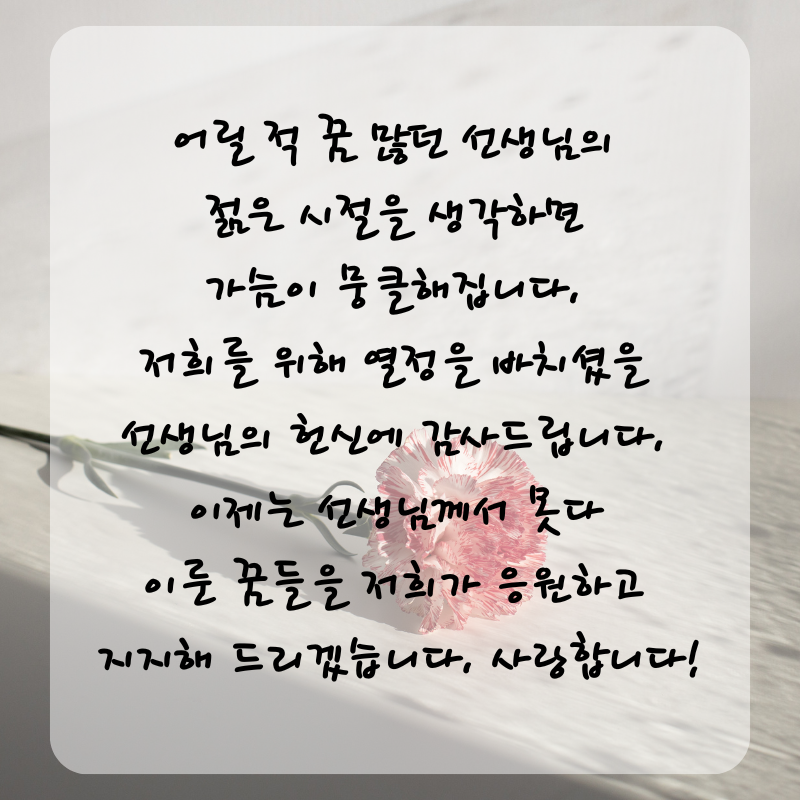 어릴 적 꿈 많던 선생님의
젊은 시절을 생각하면
가슴이 뭉클해집니다.
저희를 위해 열정을 바치셨을
선생님의 헌신에 감사드립니다.
이제는 선생님께서 못다
이룬 꿈들을 저희가 응원하고
지지해 드리겠습니다. 사랑합니다!